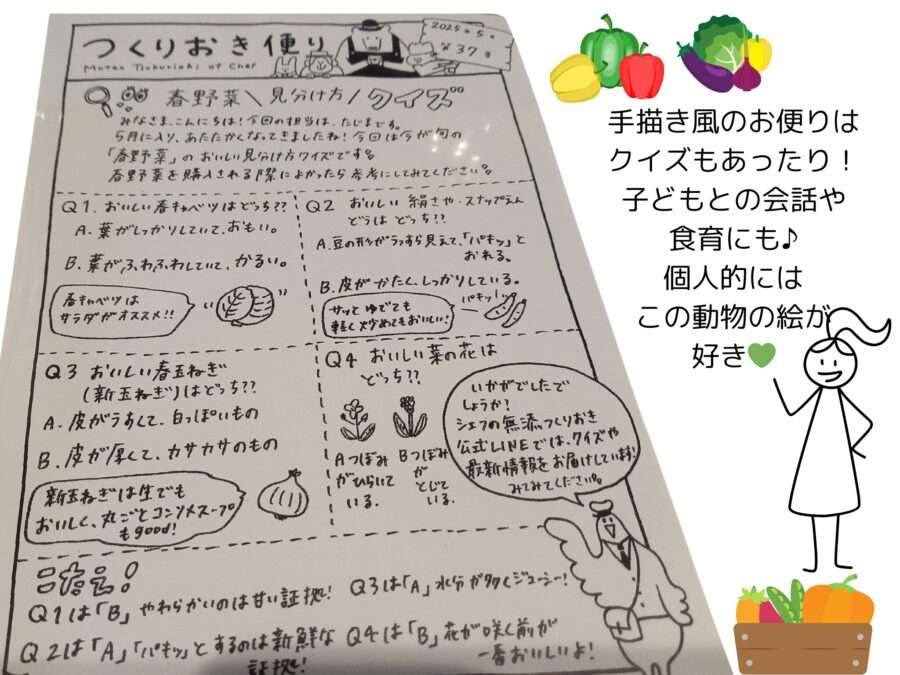 つくりおき便り
Muten Tsukurioki of Chef
2025年5月
第37号
春野菜＼見分け方／クイズ
みなさま、こんにちは！今回の担当は、たじまです。
5月に入り、あたたかくなってきましたね！今回は今が旬の
「春野菜」のおいしい見分け方クイズです。
春野菜を購入される際によかったら参考にしてみてください。
Q1. おいしい春キャベツはどっち??
A. 葉がしっかりしていて、おもい。
B. 葉がふわふわしていて、かるい。
春キャベツは
サラダがオススメ!!
Q2 おいしい 絹さや・スナップえん
どうは どっち??
A. 豆の形がうっすら見えて、「パキッ」と
おれる。
B. 皮がかたく、しっかりしている。
サッとゆでても
軽く炒めてもおいしい！
パキッ！
Q3 おいしい春玉ねぎ
(新玉ねぎ)はどっち??
A. 皮がうすくて、白っぽいもの
B. 皮が厚くて、カサカサのもの
新玉ねぎは生でも
おいしく、丸ごとコンソメスープ
もgood!
Q4 おいしい菜の花は
どっち??
Aつぼみ
がひらいて
いる。
Bつぼみ
が
とじて
いる。
いかがでしたで
しょうか？
シェフの無添つくりおき
公式LINEでは、クイズや
最新情報をお届けしています！
みてみてください。
こたえ！
Q1は「B」やわらかいのは甘い証拠！
Q3は「A」水分が多くジューシー！
Q2は「A」「パキッ」とするのは新鮮な
証拠！
Q4は「B」花が咲く前が
一番おいしいよ！
手描き風のお便りは
クイズもあったり！
子どもとの会話や
食育にも♪
個人的には
この動物の絵が
好き💚